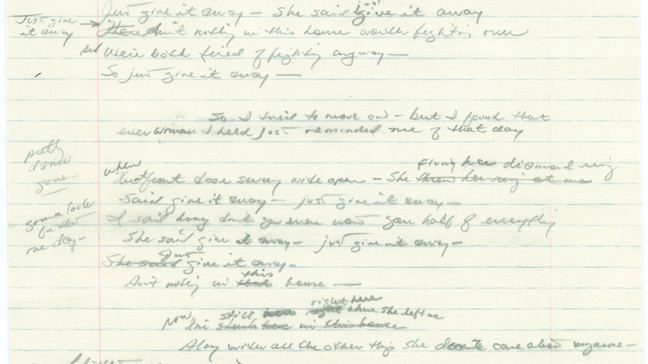 Just give it away – She said give it away
Just give
it away
There ain't nothing in this house worth fighting over
And we're both tired of fighting anyway –
So just give it away –
So I tried to move on – but I found that
ever woman I held just reminded me of that day
pretty
gone
when
flung her diamond ring
that front door swung wide open – She threw her ring at me
Said give it away – just give it away –
gonna look
for that
one day –
I said honey don't you even want your half of everything
She said give it away – just give it away –
Just
She said give it away –
this
Ain't nothing in that house —
right here
Now still here right where she left me
I'm stuck here in this house
Along with all the other things she don't care about anymore –